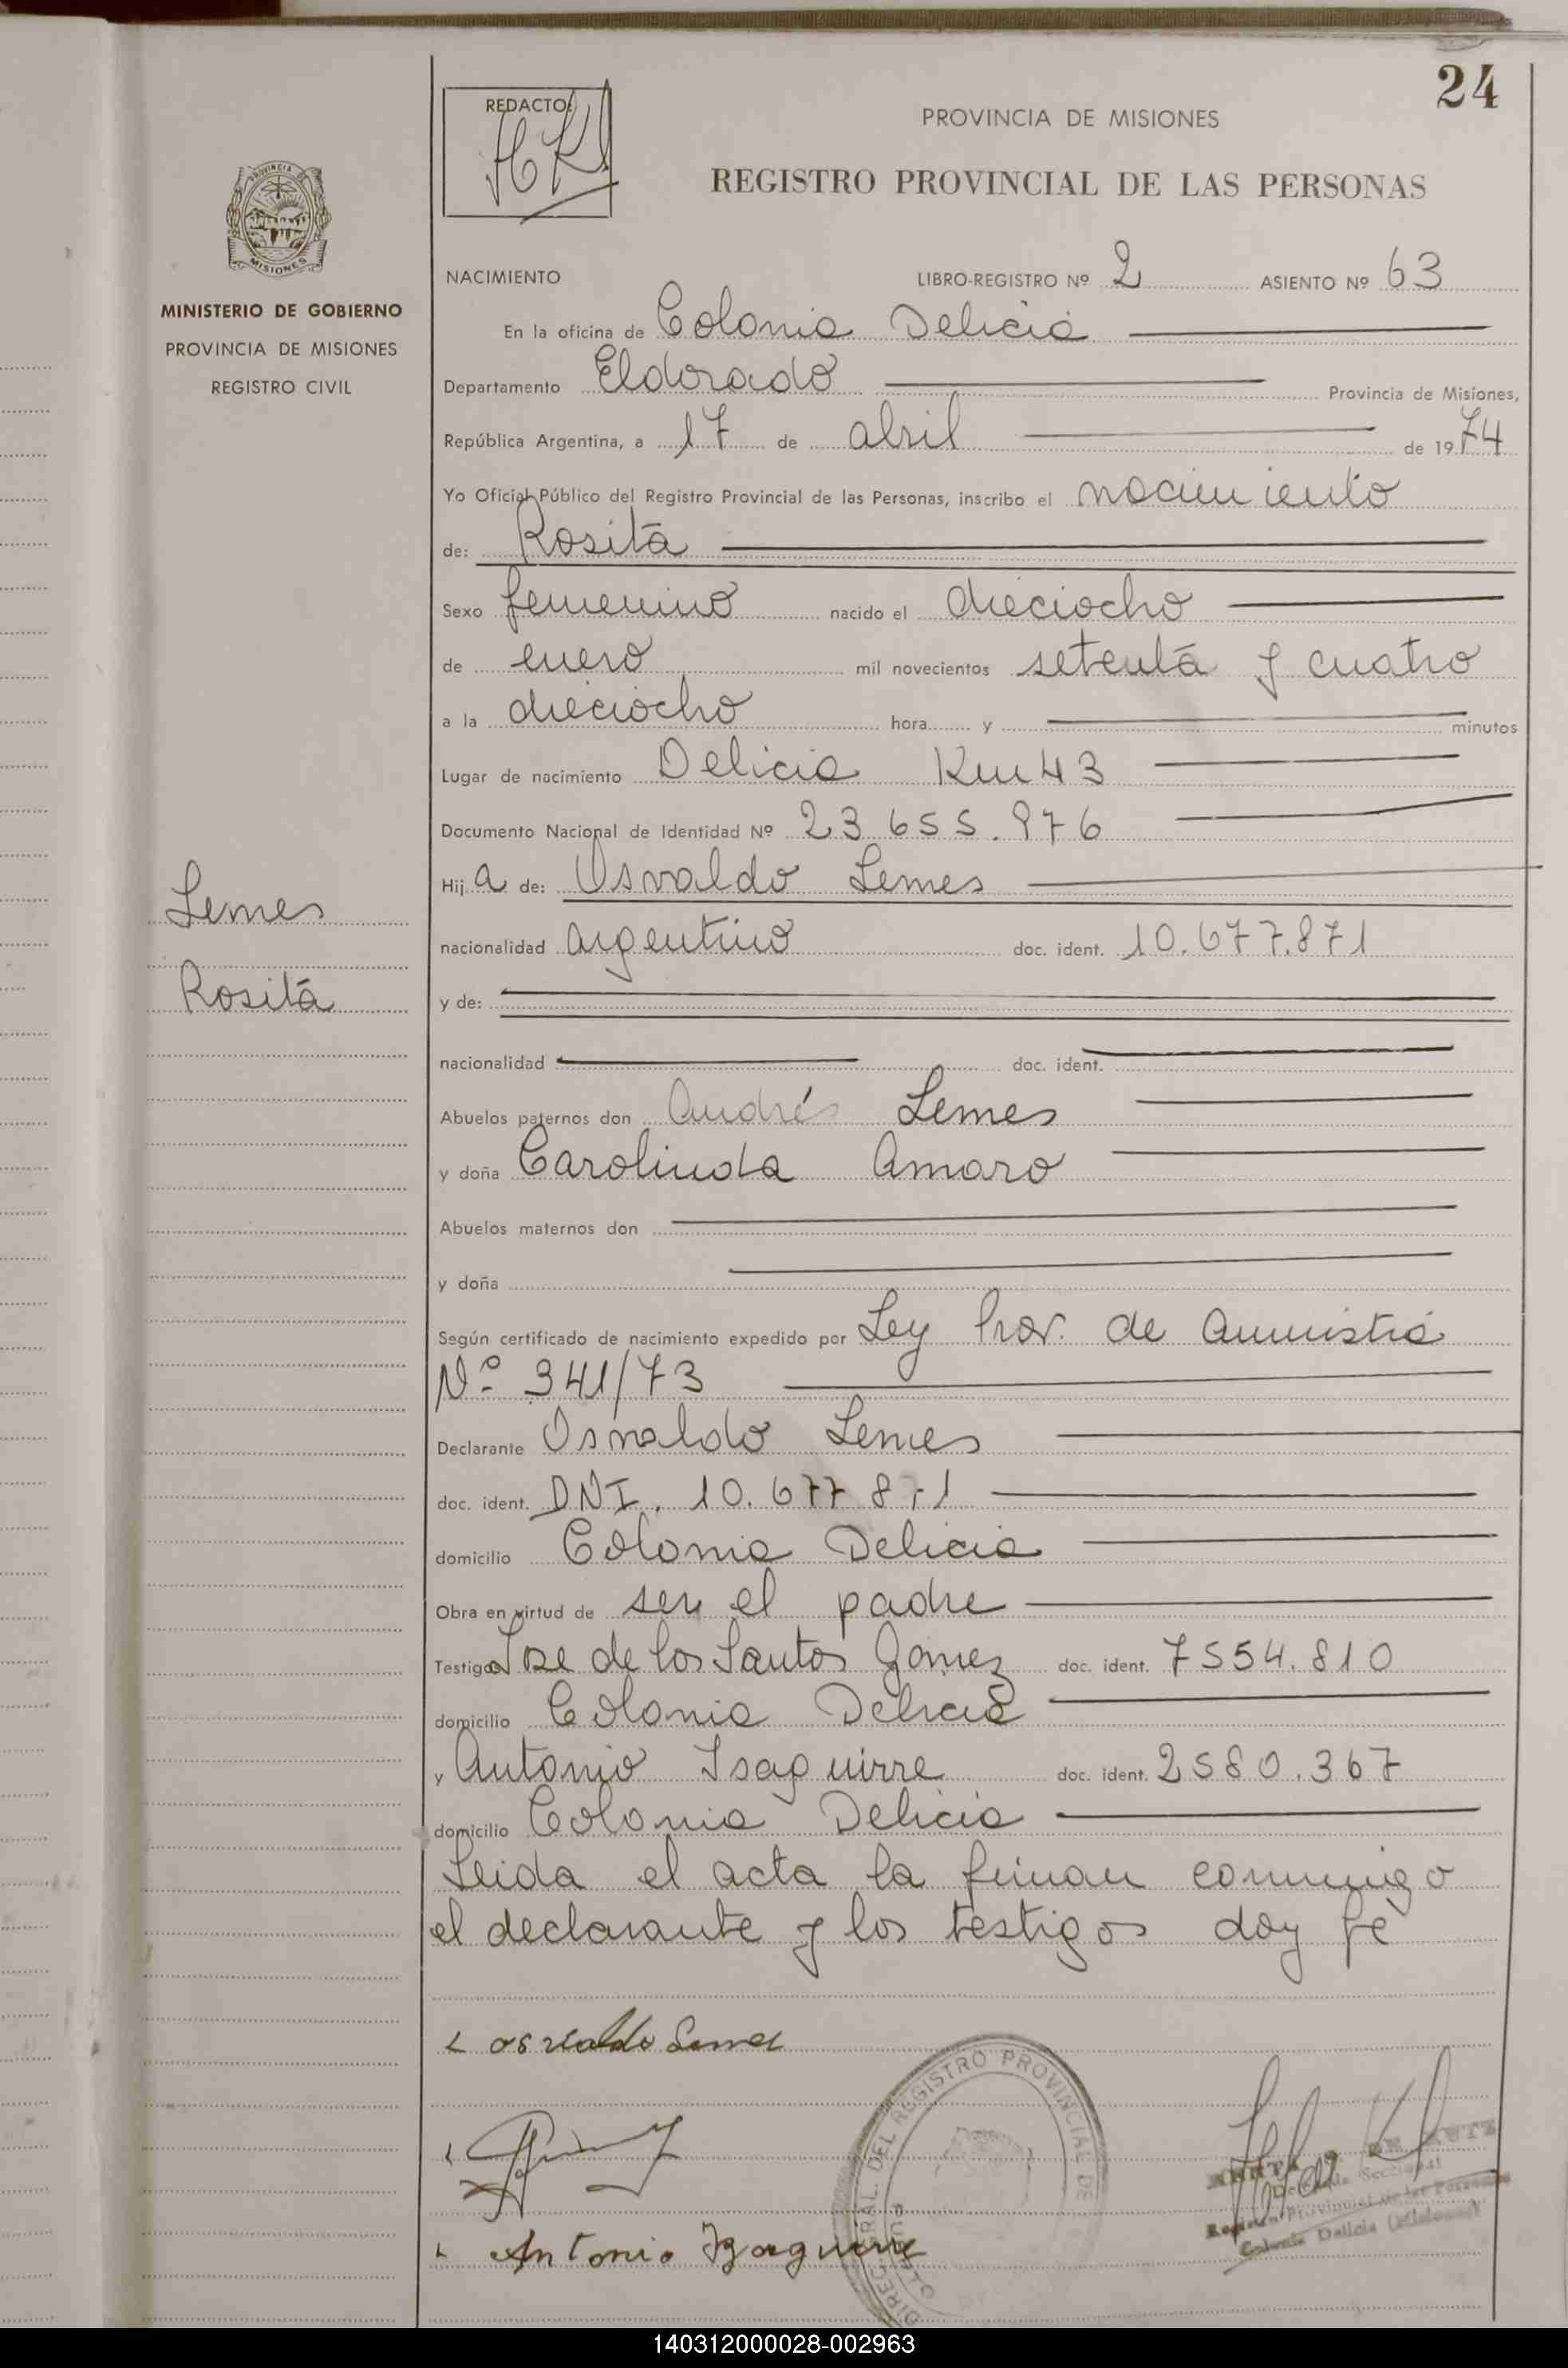 24
REDACTO:
PROVINCIA DE MISIONES
REGISTRO PROVINCIAL DE LAS PERSONAS
PROVINCIA DE
MISIONES
MINISTERIO DE GOBIERNO
PROVINCIA DE MISIONES
REGISTRO CIVIL
NACIMIENTO LIBRO-REGISTRO Nº 2 ASIENTO Nº 63
En la oficina de Colonia Delicia
Departamento Eldorado Provincia de Misiones,
República Argentina, a 17 de abril de 1974
Yo Oficial Público del Registro Provincial de las Personas, inscribo el nacimiento
de: Rosita
Sexo femenino nacido el dieciocho
de enero mil novecientos setenta y cuatro
a la dieciocho hora y minutos
Lugar de nacimiento Delicia Km 43
Documento Nacional de Identidad Nº 23 655.976
Hija de: Osvaldo Lemes
Lemes
nacionalidad argentino doc. ident. 10.677.871
Rosita
y de:
nacionalidad doc. ident.
Abuelos paternos don Andrés Lemes
y doña Carolinda Amaro
Abuelos maternos don
y doña
Según certificado de nacimiento expedido por Ley Prov. de Amnistia
Nº 341/73
Declarante Osvaldo Lemes
doc. ident. DNI. 10.677 871
domicilio Colonia Delicia
Obra en virtud de ser el padre
Testigos Jose de los Santos Gomez doc. ident. 7554.810
domicilio Colonia Delicia
y Antonio Isaguirre doc. ident. 2580.367
domicilio Colonia Delicia
Leida el acta la firman conmigo
el declarante y los testigos doy fe
osvaldo Lemes
Antonio Izaguirre
DIREC. GRAL. DEL REGISTRO PROVINCIAL DE
Registro Provincial de las Personas
Colonia Delicia (Misiones)
140312000028-002963